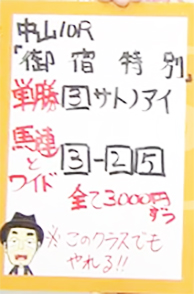 中山10R
『御宿特別』
単勝 3 サトノアイ
馬連とワイド
3-25
全て3000円ずつ
※このクラスでも
やれる!!